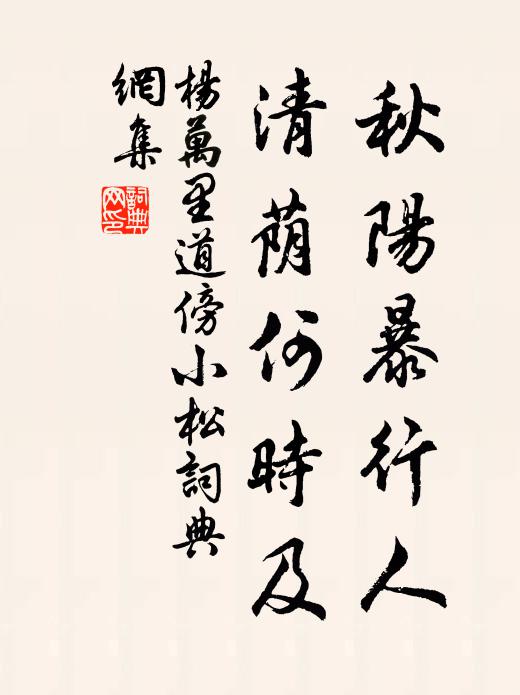 秋陽暴行人
清荫何時及
楊萬里道傍小松詞典
網集
詞典
网印